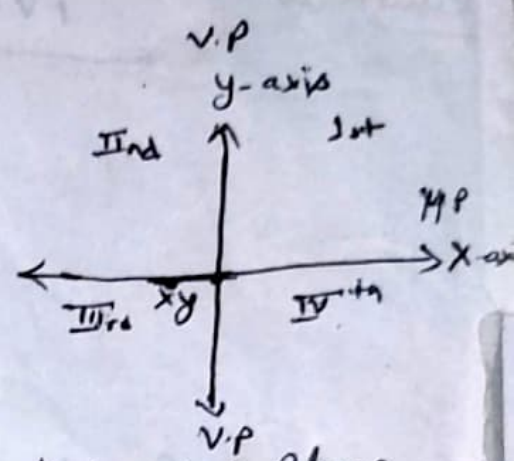 V.P
y-axis
IInd
Ist
HP
X-ax
IIIrd
xy
IVth
V.P